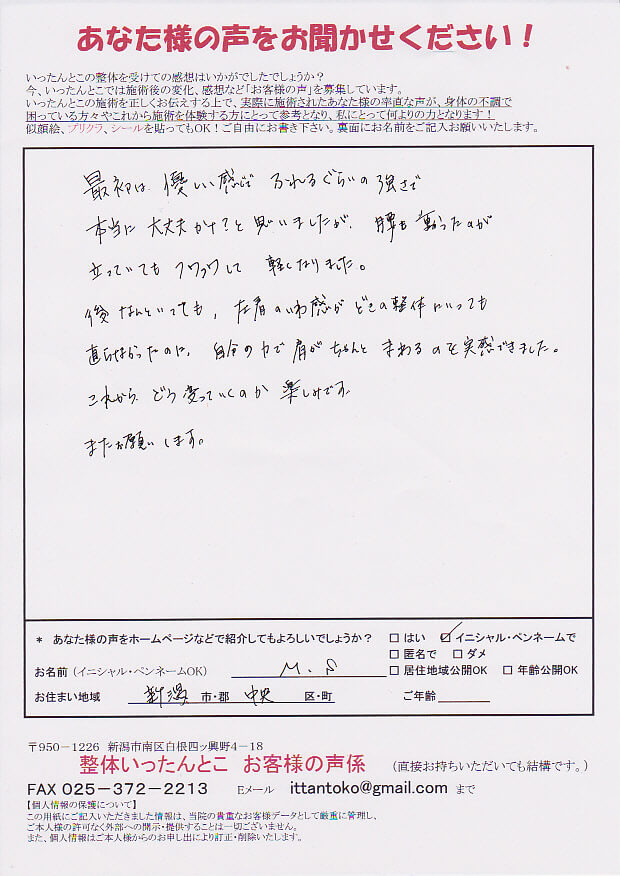 あなた様の声をお聞かせください！
いったんとこの整体を受けての感想はいかがでしたでしょうか？
今、いったんとこでは施術後の変化、感想など「お客様の声」を募集しています。
いったんとこの施術を正しくお伝えする上で、実際に施術されたあなた様の率直な声が、身体の不調で
困っている方々やこれから施術を体験する方にとって参考となり、私にとって何よりの力となります！
似顔絵、プリクラ、シールを貼ってもOK！ご自由にお書き下さい。裏面にお名前をご記入お願いいたします。
最初は、優しい感じで ふれるぐらいの強さで
本当に 大丈夫かな？と思いましたが、腰も重かったのが
立っていても フワフワして 軽くなりました。
後 なんといっても、左肩のいわ感が どこの整体にいっても
直らなかったのに、自分の力で肩がちゃんと まわるのを実感できました。
これから どう変っていくのか 楽しみです。
またお願いします。
* あなた様の声をホームページなどで紹介してもよろしいでしょうか？ □ はい ☑ イニシャル・ペンネームで
□ 匿名で □ ダメ
お名前（イニシャル・ペンネームOK） M.S □ 居住地域公開OK □ 年齢公開OK
お住まい地域 新潟 市・郡 中央 区・町 ご年齢
〒950－1226 新潟市南区白根四ッ興野4－18
整体いったんとこ お客様の声係 （直接お持ちいただいても結構です。）
FAX 025-372-2213 Eメール ittantoko@gmail.com まで
【個人情報の保護について】
この用紙にご記入いただきました情報は、当院の貴重なお客様データとして厳重に管理し、
ご本人様の許可なく外部への開示・提供することは一切ございません。
また、個人情報はご本人様からのお申し出により訂正・削除いたします。